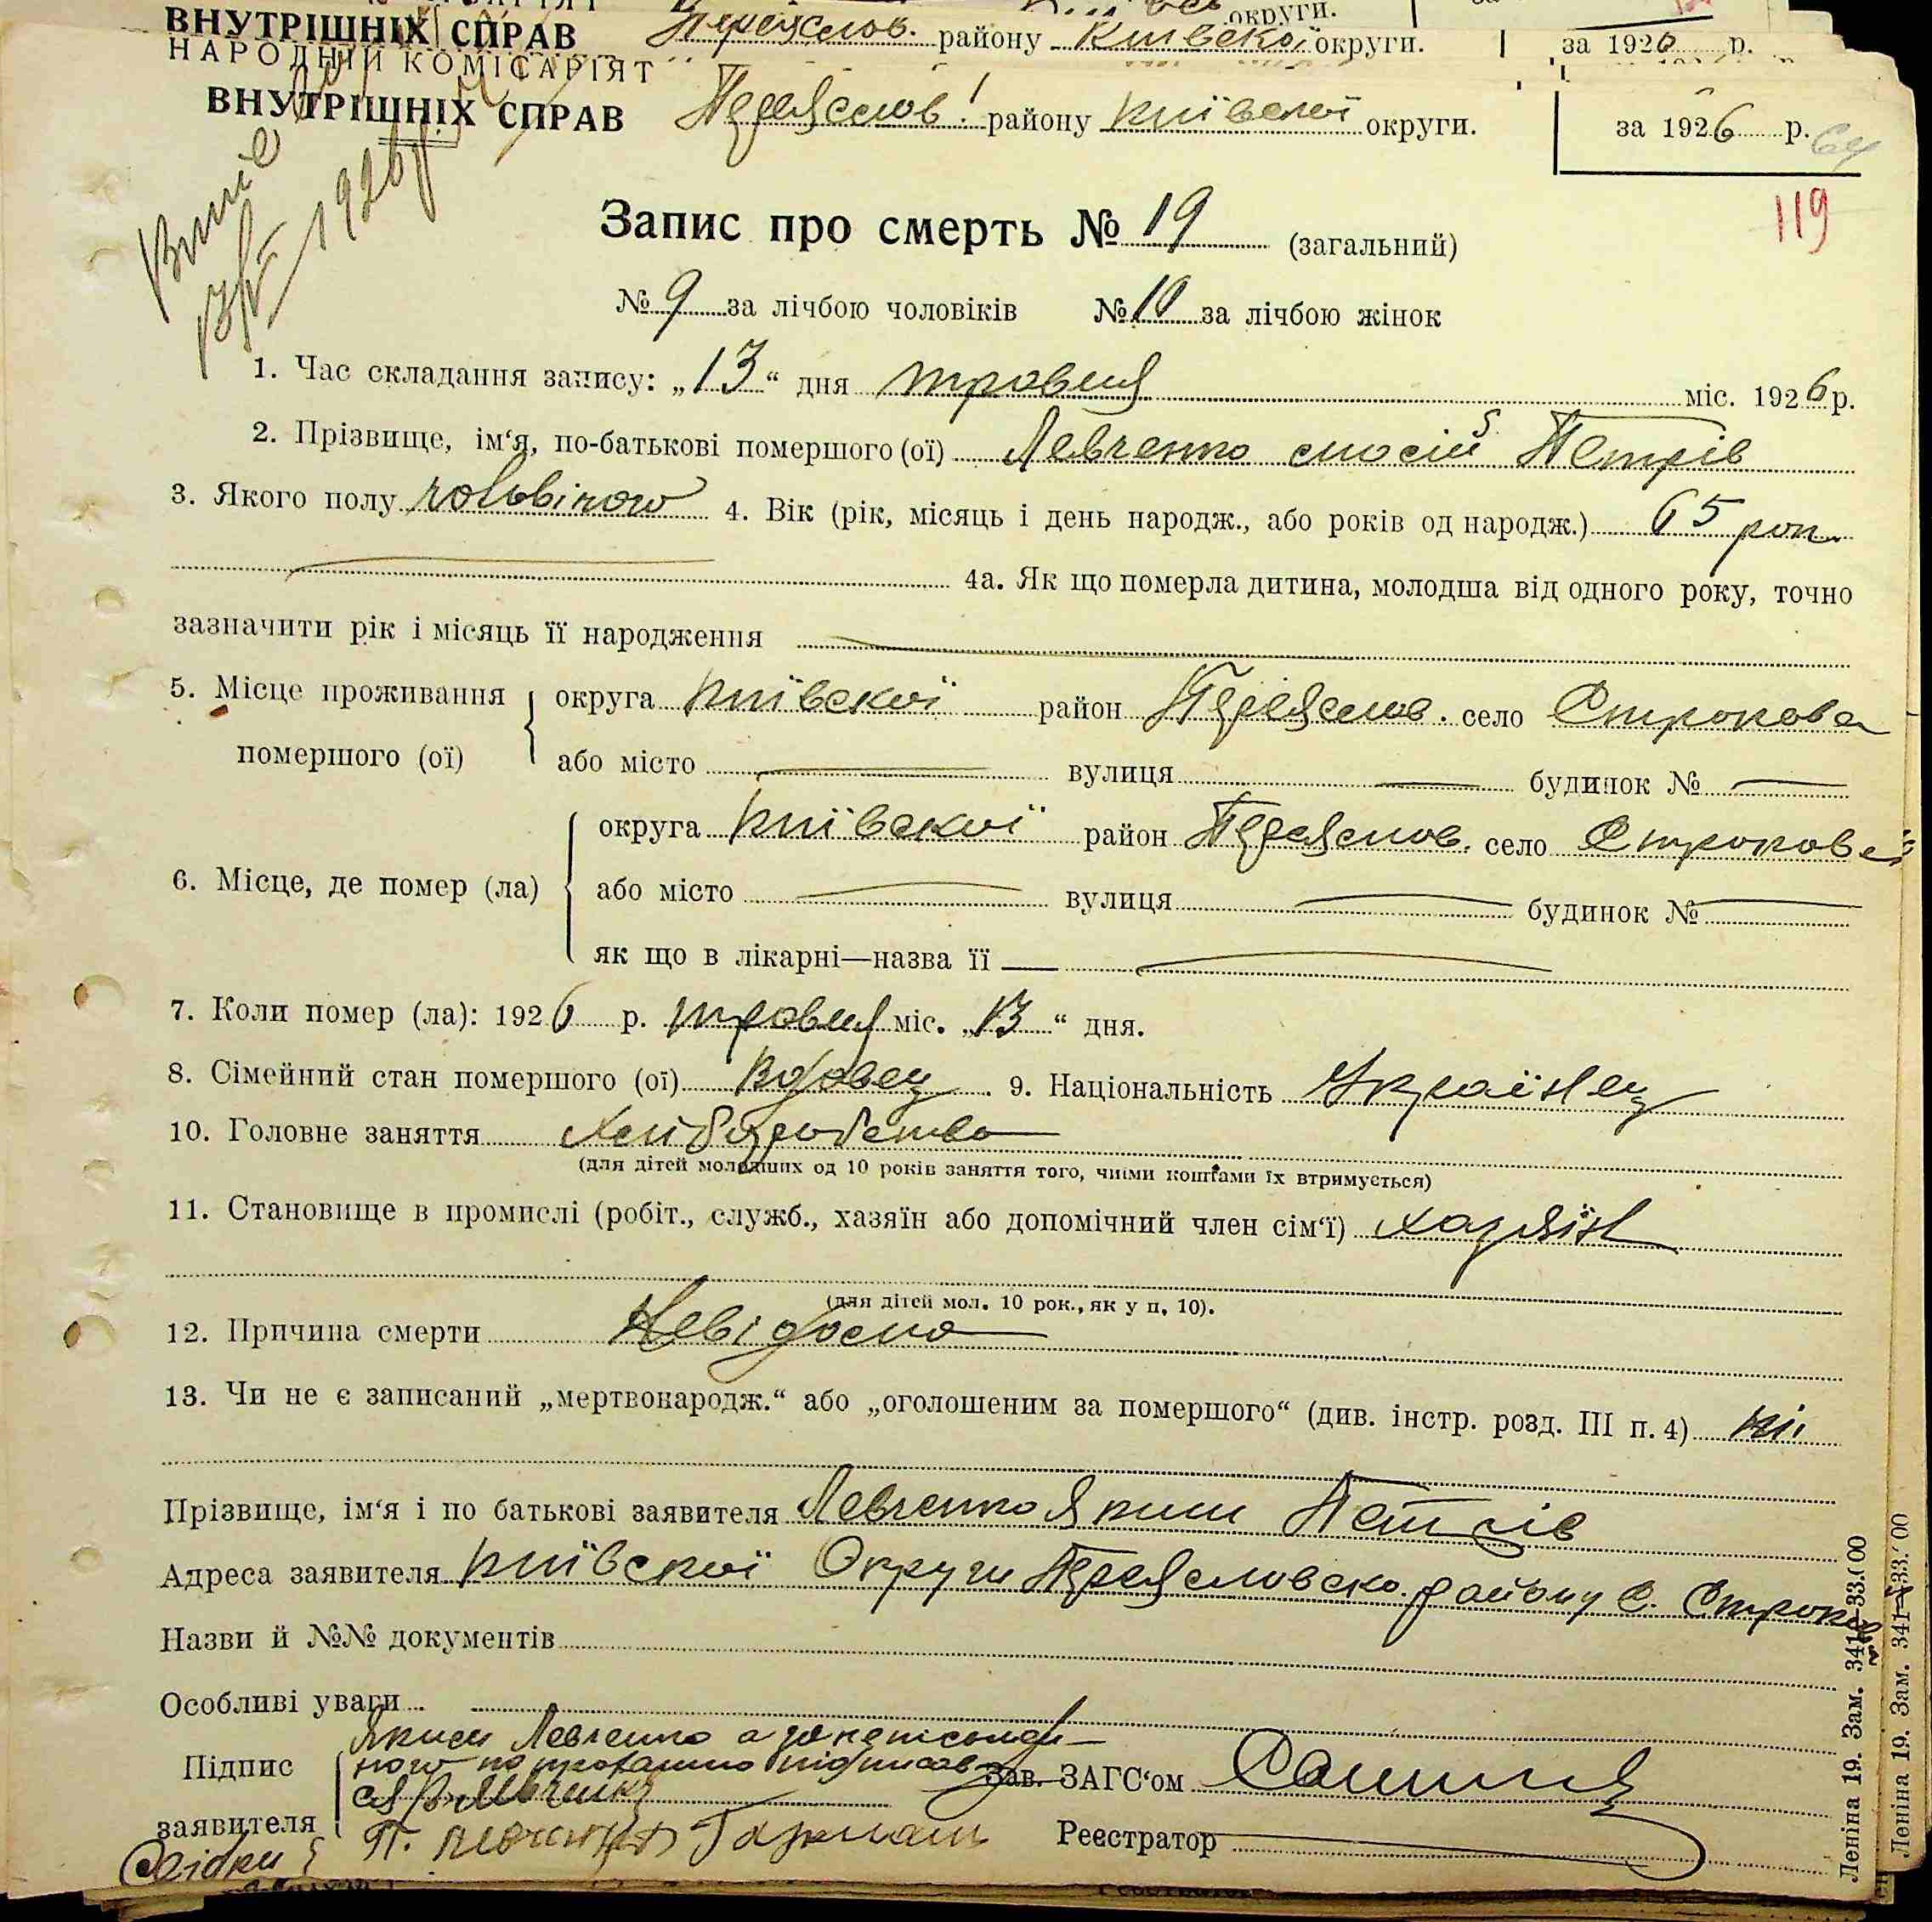 ВНУТРІШНІХ СПРАВ Переяслов. району Київської округи. за 1926 р.
НАРОДНИЙ КОМІСАРІЯТ
ВНУТРІШНІХ СПРАВ Переяслов. району Київської округи. за 1926 р. 64
1926
119
Запис про смерть № 19 (загальний)
№ 9 за лічбою чоловіків № 10 за лічбою жінок
1. Час складання запису: „13“ дня травня міс. 1926 р.
2. Прізвище, ім‘я, по-батькові помершого (ої) Левченко Петрів
3. Якого полу 4. Вік (рік, місяць і день народж., або років од народж.) 65 рок
4а. Як що померла дитина, молодша від одного року, точно
зазначити рік і місяць її народження
5. Місце проживання помершого (ої) округа Київської район Переяслов. село Строкова
або місто вулиця будинок №
6. Місце, де помер (ла) округа Київської район Переяслов. село Строкова
або місто вулиця будинок №
як що в лікарні—назва її
7. Коли помер (ла): 1926 р. травня міс. „13“ дня.
8. Сімейний стан помершого (ої) Вдовец 9. Національність Українец
10. Головне заняття Хлиборобство
(для дітей молодших од 10 років заняття того, чиїми коштами їх втримується)
11. Становище в промислі (робіт., служб., хазяїн або допомічний член сім‘ї) хазяїн
(для дітей мол. 10 рок., як у п. 10).
12. Причина смерти Невідома
13. Чи не є записаний „мертвонародж.“ або „оголошеним за помершого“ (див. інстр. розд. III п. 4) ні.
Прізвище, ім‘я і по батькові заявителя Левченко Яким Петрів
Адреса заявителя Київскої Округи Переясловско. району С. Строкова
Назви й №№ документів
Особливі уваги
Підпис заявителя Яким Левченко а за неписьмен-
ного по проханню підписав
Левченко
Зав. ЗАГС‘ом
Реєстратор
Свідки
Леніна 19. Зам. 341—33.000
Леніна 19. Зам. 341—33.000